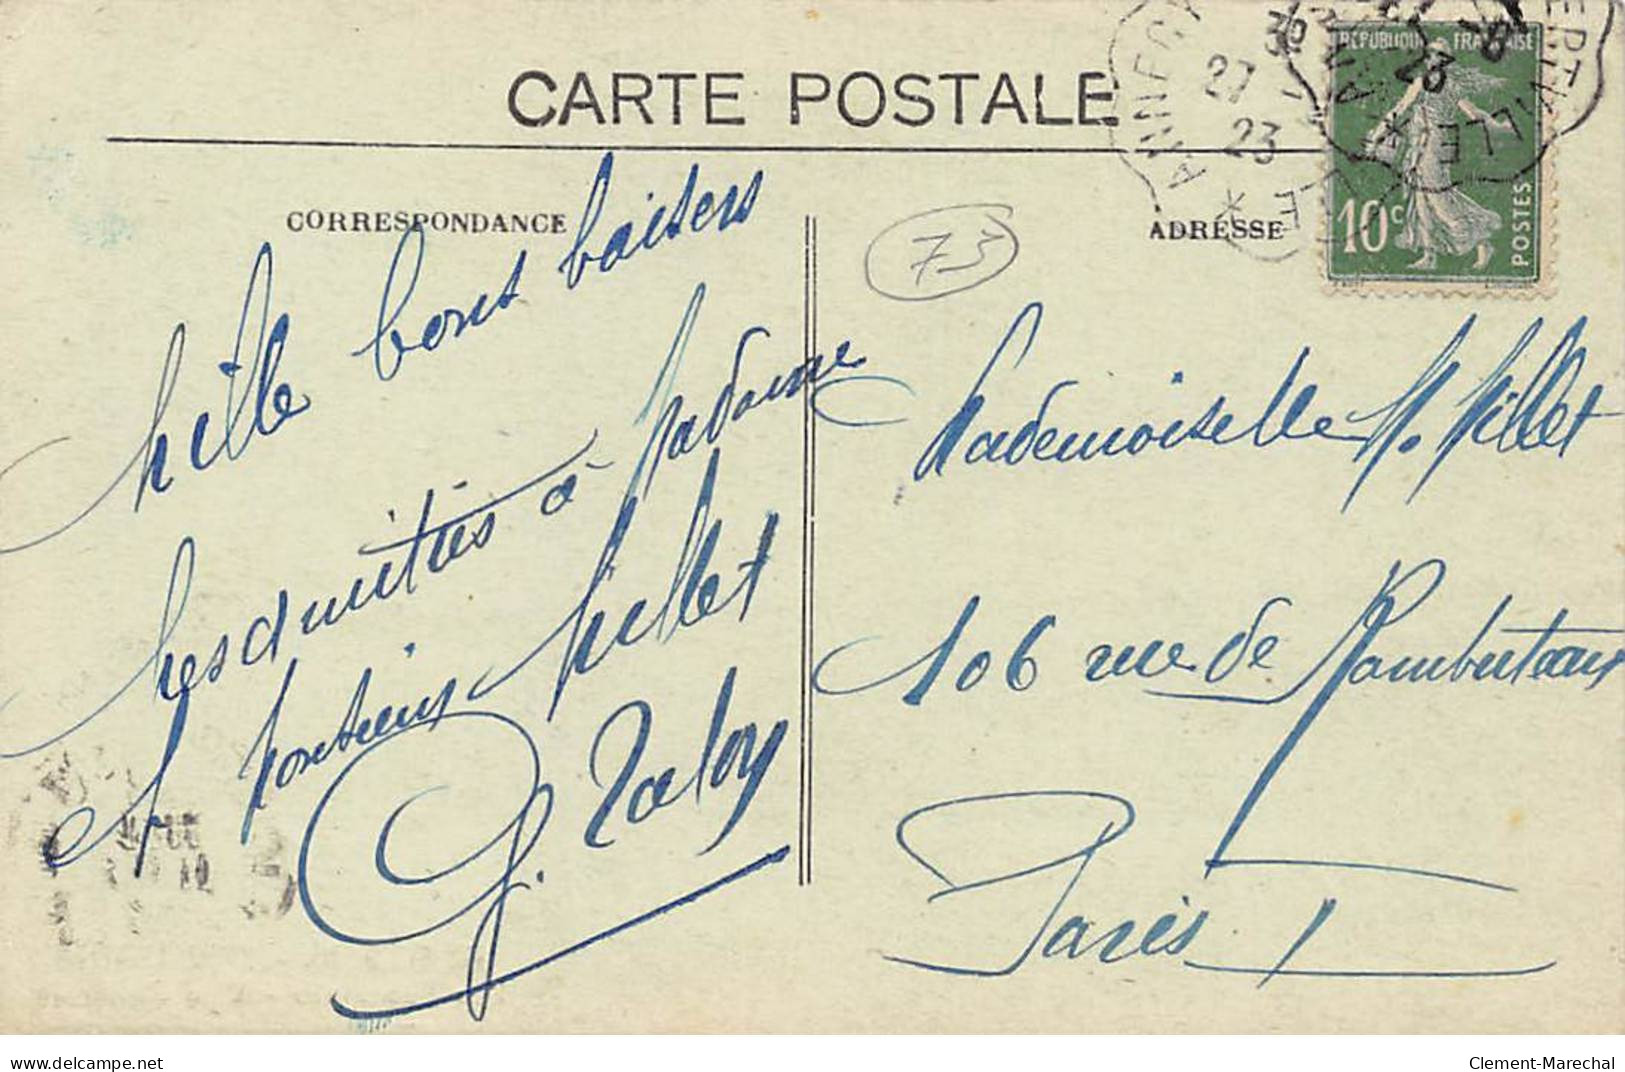 CARTE POSTALE
CORRESPONDANCE
ADRESSE
73
RÉPUBLIQUE FRANÇAISE
10c
POSTES
ANNECY
27
23
ERTVILLE
23
Mille bons baisers
Mes amitiés à Madame
et Monsieur Millet
G.
Mademoiselle M. Millet
106 rue de Rambuteau
Paris I
delcampe.net
Clement-Marechal